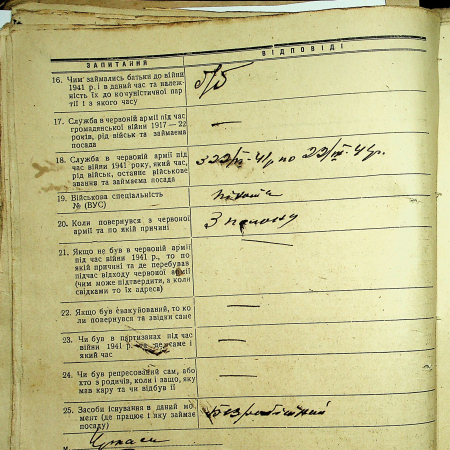 ЗАПИТАННЯ
ВІДПОВІДІ
16. Чим займались батьки до війни
1941 р. і в даний час та належ-
ність їх до комуністичної пар-
тії і з якого часу
б/б
17. Служба в червоній армії під час
громадянської війни 1917—22
років, рід військ та займаема
посада
—
18. Служба в червоній армії під
час війни 1941 року, який час,
рід військ, останнє військове
звання та займаема посада
19. Військова спеціальність
№ (ВУС)
піхота
20. Коли повернувся з червоної
армії та по якій причині
З полону
21. Якщо не був в червоній армії
під час війни 1941 р., то по
якій причині та де перебував
підчас відходу червоної армії
(чим може підтвердити, а коли
свідками то їх адреса)
—
22. Якщо був евакуйований, то ко
ли повернувся та звідки саме
—
23. Чи був в партизанах під час
війни 1941 р., де саме і
який час
—
24. Чи був репресований сам, або
хто з родичів, коли і защо, яку
мав кару та чи відбув її
—
25. Засоби існування в даний мо-
мент (де працює і яку займає
посаду)
Безробітний